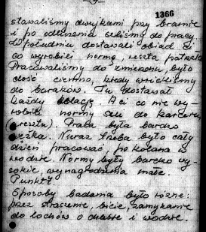 1366
stawaliśmy dwójkami przy bramie
i po odliczeniu szliśmy do pracy
dostawali obiad Ci
co wyrobili normę, reszta
Pracowaliśmy do zmierzchu, było
dość ciemno, kiedy wróciliśmy
do baraków. Tu dostawał
każdy kolację. A ci co nie wy
robili normy szli do karceru.
Praca była bardzo
ciężka. Nieraz trzeba było cały
dzień pracować, po kolana w
wodzie. Normy były bardzo wy
sokie, wynagrodzenia małe.
Sposoby badania były różne:
przez straszenie, bicie, zamykanie
do lochów o chlebie i wodzie.